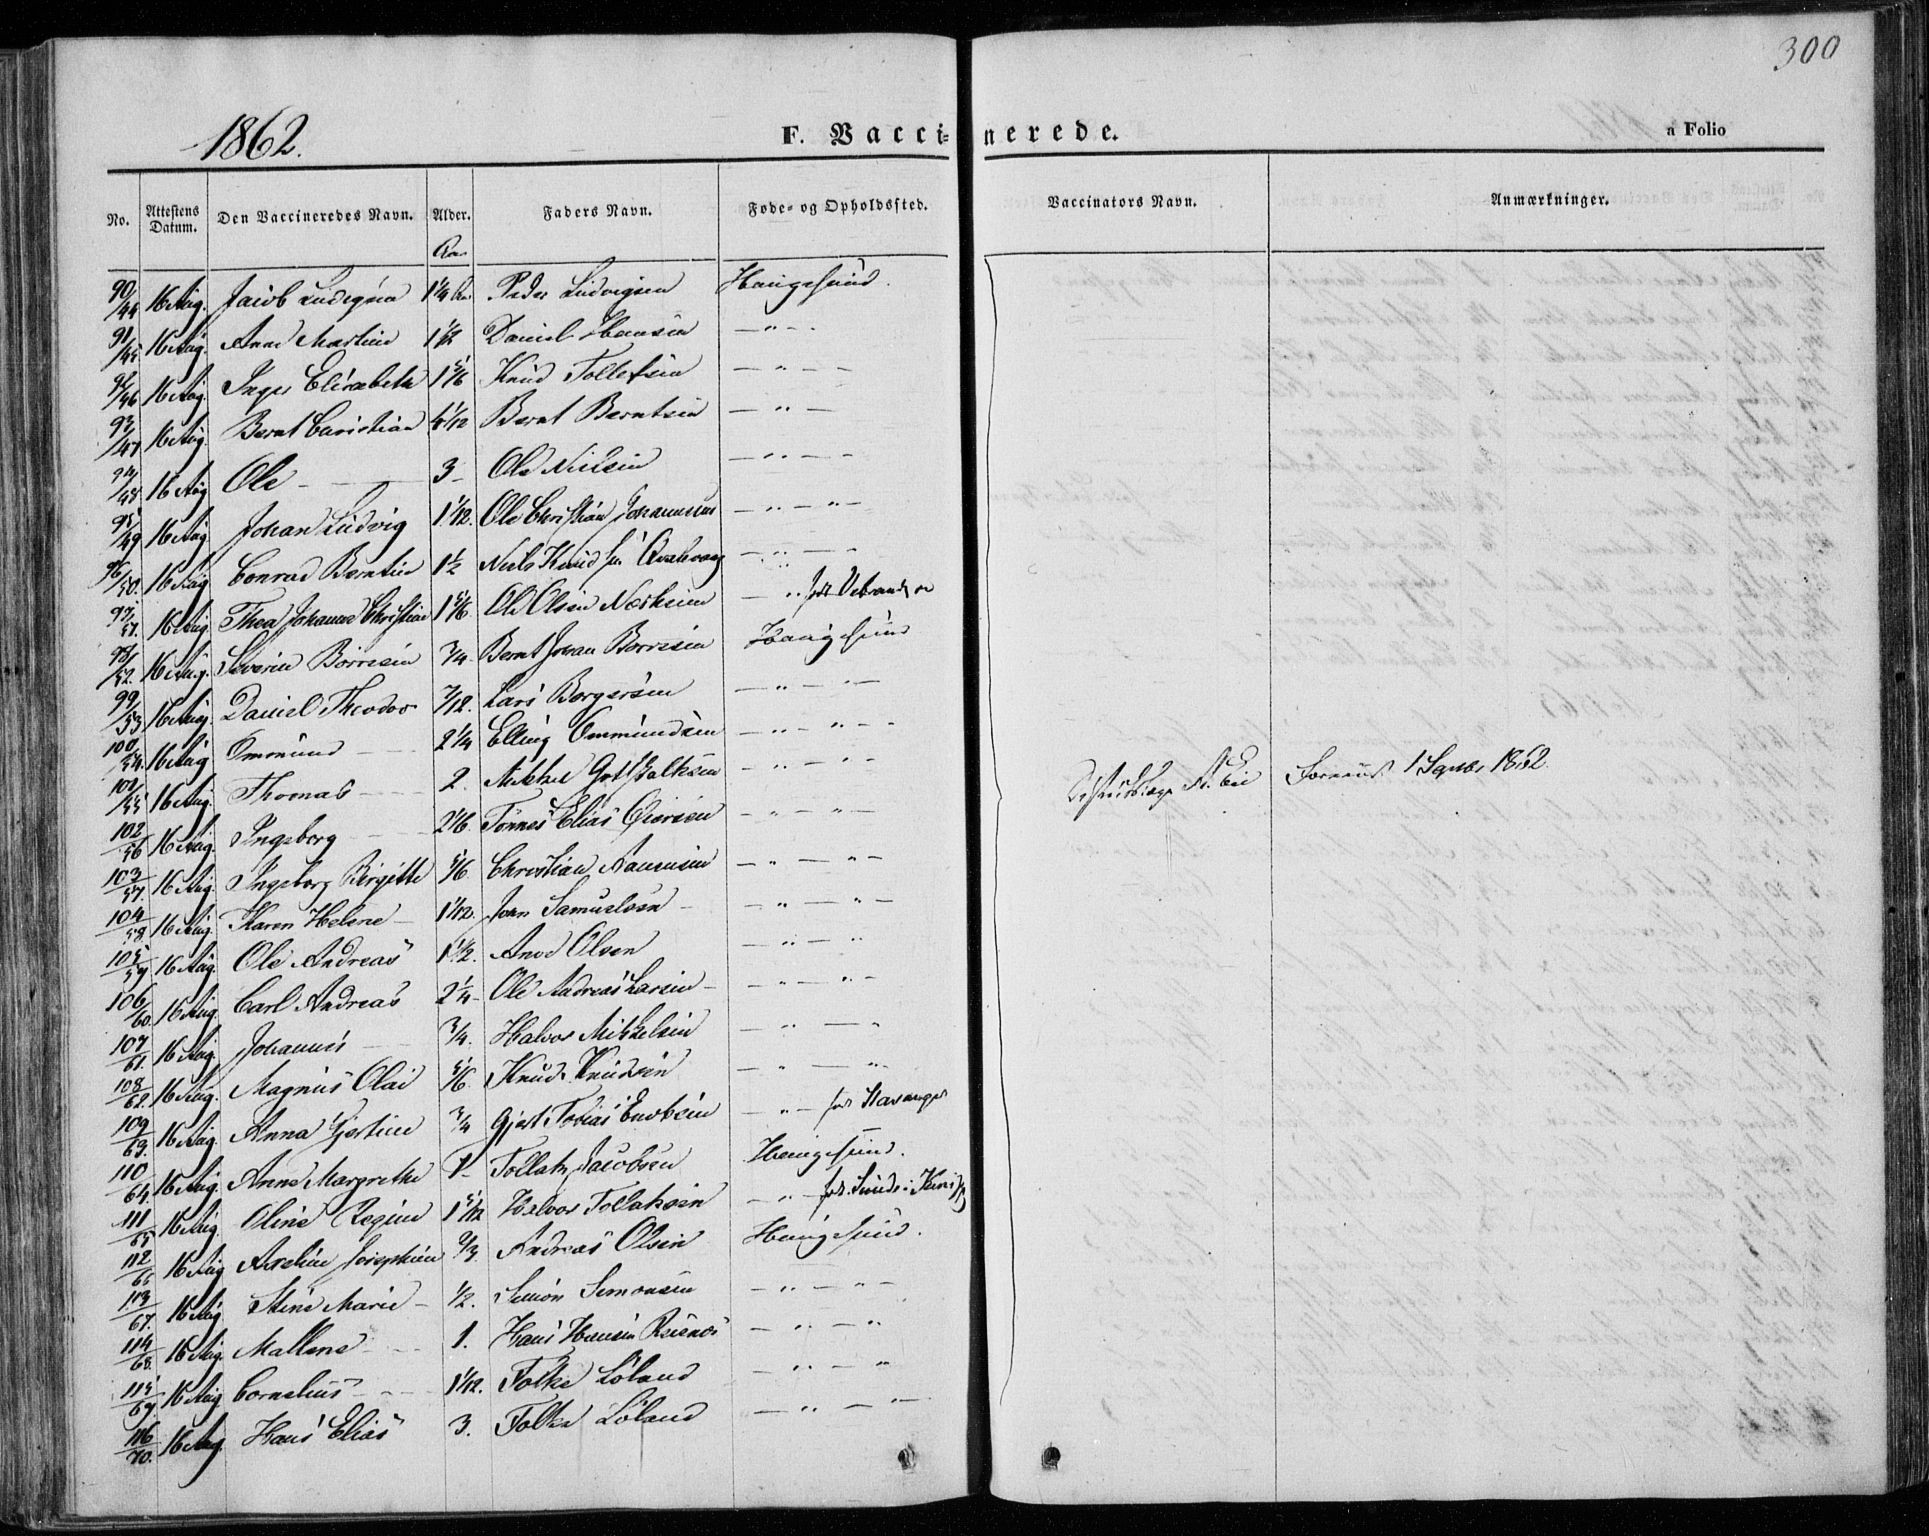 300
1862.
F. Vaccinerede.
a Folio
No. Attestens Datum. Den Vaccineredes Navn. Alder. Faders Navn. Føde- og Opholdssted. Vaccinators Navn. Anmærkninger.
Aar
90/44 16 Aug. Jacob 1 1/4 Aar Peder Ludvigsen Haugesund.
91/45 16 Aug. Anne Martine 1 1/2 Daniel Hansen — " —
92/46 16 Aug. Inger Elisabeth 1 5/6 Knud Tollefsen — " —
93/47 16 Aug. Bernt Christian Bernt Berntsen — " —
94/48 16 Aug Ole — 3 — Ole Nielsen — " —
95/49 16 Aug. Johan Ludvig 1 1/12. Ole Christian Johannesen — " —
96/50. 16 Aug Conrad Berntin 1 1/2 Niels Knudsen — " —
97/51. 16 Aug. Thea Johanne Christine 1 5/6 Ole Olsen — " født
98/52. 16 Aug. Severin Børresen 3/4. Bernt Johan Børresen Haugesund
99/53 16 Aug. Daniel Theodor 7/12. Lars Borgersen — " —
100/54. 16 Aug Ommund — 2 1/4 Elling Ommundsen — " —
101/55 16 Aug. Thomas — 2. Mikkel Gottschalksen — " — Distriktslæge Forevist 1 Septbr 1862.
102/56 16 Aug. Ingeborg — 2 1/6. Tønnes Elias — " —
103/57. 16 Aug. Ingeborg Birgitte 5/6 Christian Aanensen — " —
104/58. 16 Aug. Karen Helene — 1 1/12. John Samuelsen — " —
105/59 16 Aug. Ole Andreas 1 1/2. Olsen — " —
106/60. 16 Aug. Carl Andreas 2 1/4 — Ole Andreas Larsen — " —
107/61. 16 Aug. Johannes — 3/4. Halvor Mikkelsen — " —
108/62. 16 Aug. Magnus Olai 5/6 Knud Knudsen — " —
109/63. 16 Aug. Anna Gjertine 3/4 Gjert Tobias — " — født Stavanger
110/64. 16 Aug. Anne Margrethe 1 — Tollak Jacobsen Haugesund.
111/65 16 Aug. Oline Regine 1 5/12 Halvor Tollaksen — " — født
112/66 16 Aug Josephine 2/3. Andreas Olsen Haugesund.
113/67. 16 Aug Stine Marie — 1/2. Simon Simonsen — " —
114/68. 16 Aug. Mallene — 1. Hans Hansen — " —
115/69 16 Aug Cornelius — 1 1/12. Folke Løland — " —
116/70. 16 Aug. Hans Elias 3. Folke Løland — " —